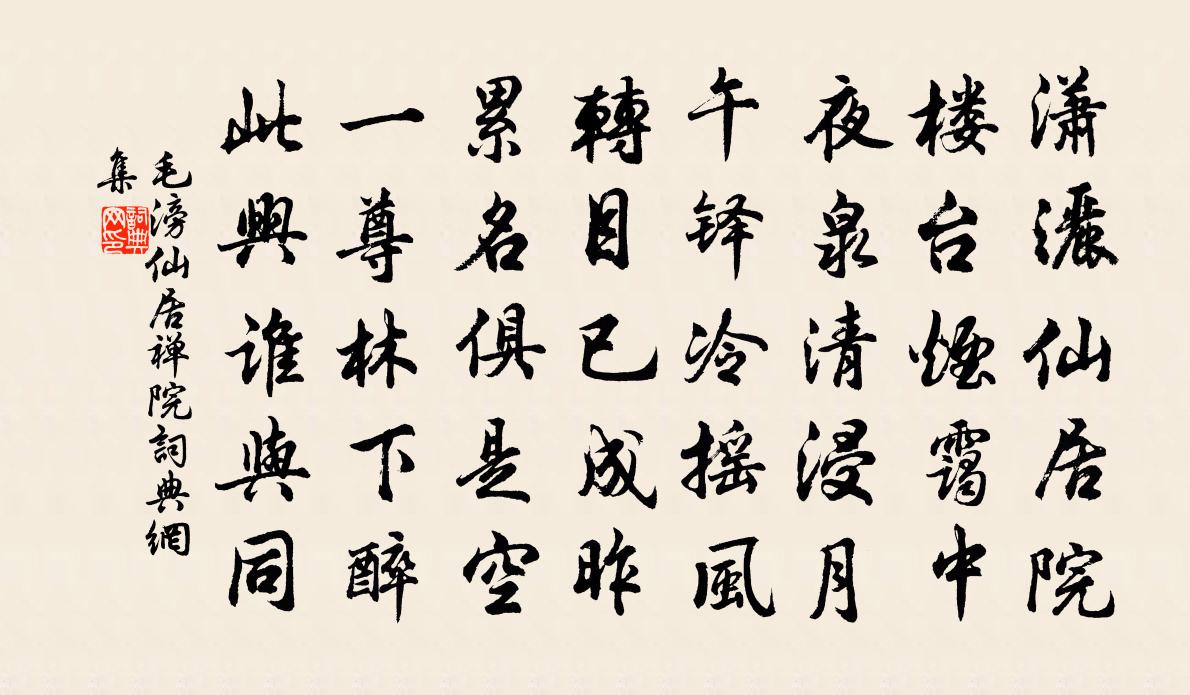 瀟灑仙居院
楼台煙靄中
夜泉清浸月
午铎冷摇風
轉目已成昨
累名俱是空
一尊林下醉
此興谁與同
毛滂仙居禅院詞典網
集
詞典
网印